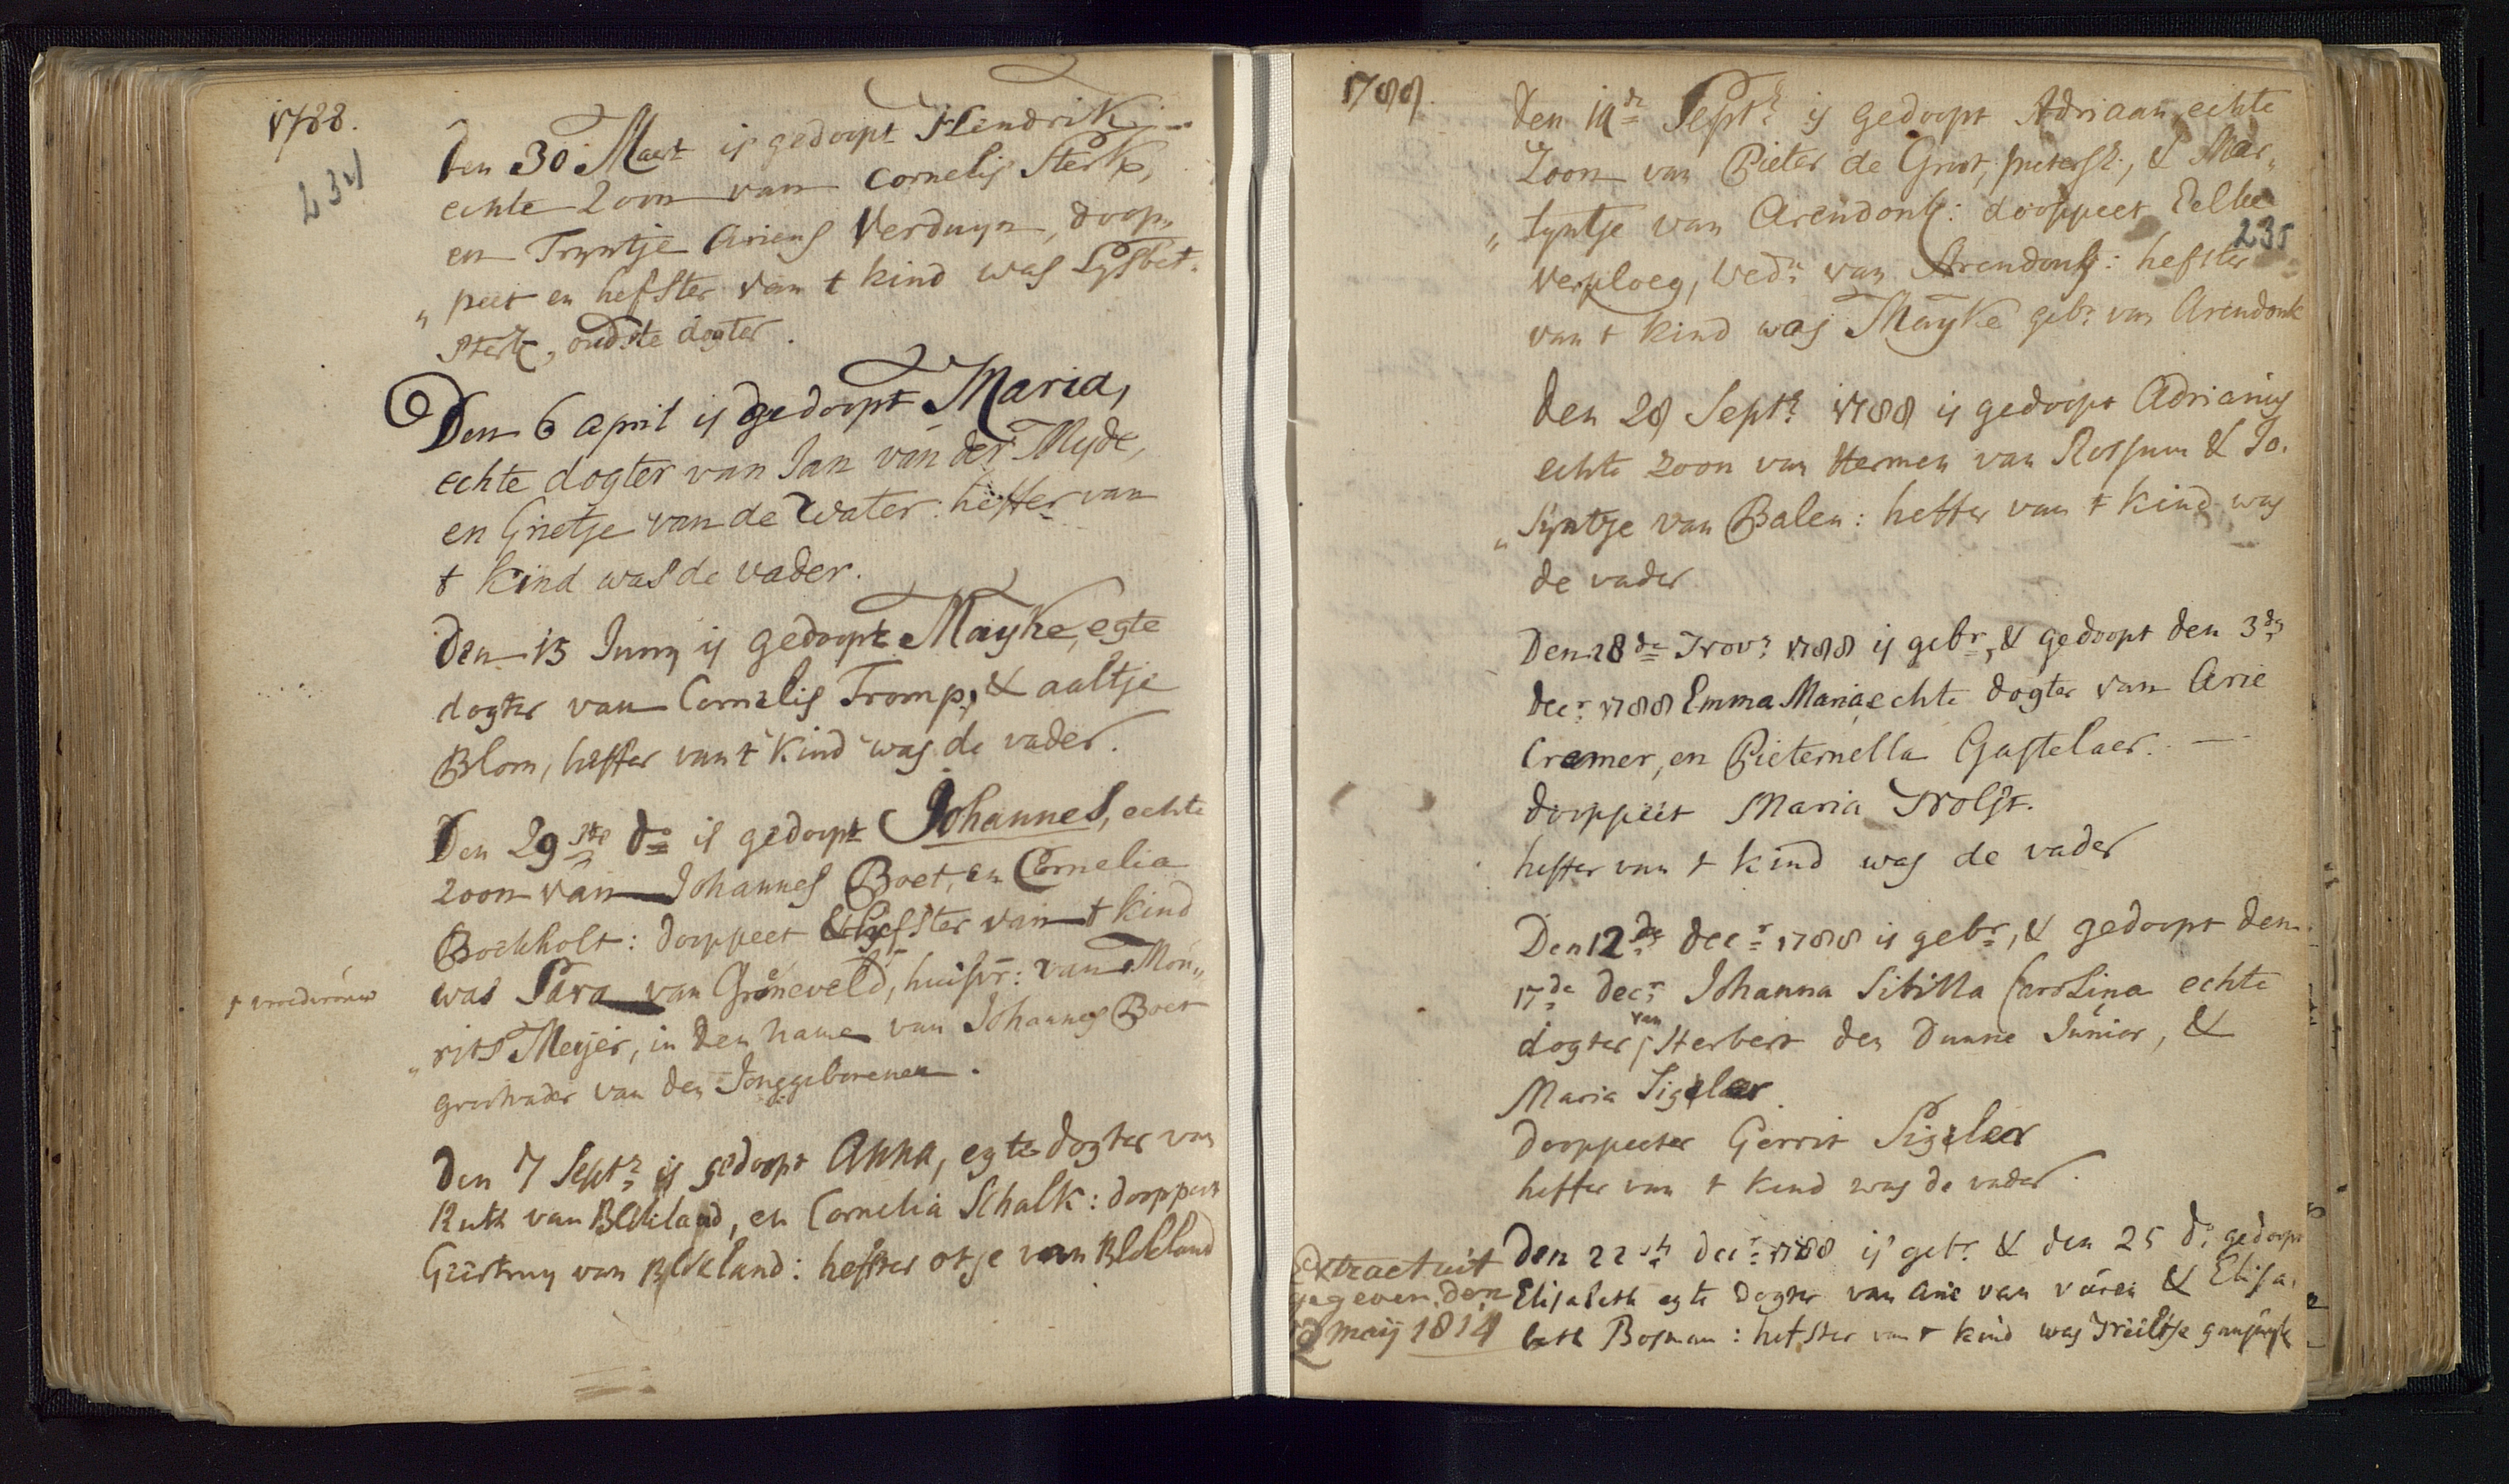 1788.
234
Den 30 Maart is gedoopt Hendrik
echte Zoon van Cornelis Sterk,
en Tryntje Ariens Verduyn, doop„
„ peet en hefster van t kind was Lysbet
Sterk, oudste dogter.
Den 6 april is gedoopt Maria,
echte dogter van Jan van der Myde,
en Grietje van de Water: heffer van
t kind was de vader.
Den 15 Juny is gedoopt Mayke, egte
dogter van Cornelis Tromp, & aaltje
Blom, heffer van t kind was de vader.
Den 29ste do is gedoopt Johannes, echte
zoon van Johannes Boet, en Cornelia
Bockholt: dooppeet & hefster van t kind
was Sara van Groneveld, huisvr: van Mou„
„ rits Meijer, in den name van Johannes Boet
grootvader van den Jonggeborenen.
t vroedvrouw
Den 7 Septr is gedoopt Anna, egte dogter van
Ruth van Blokland, en Cornelia Schalk: dooppeet
Geertruy van Blokland: hefster otje van Blokland
1788.
235
Den 14de Septr is gedoopt Adriaan, echte
Zoon van Pieter de Groot, pietersz:, & Mar„
„ tyntje van Arendonk: dooppeet Eelke
Verploeg, Wedr van Arendonk: hefster
van t kind was Mayke gebr van Arendonk
Den 28 Septr 1788 is gedoopt Adrianus
echte zoon van Hermen van Rossum & Jo.
„ syntje van Balen: heffer van t kind was
de vader
Den 28de Novr 1788 is gebr, & gedoopt den 3de
decr 1788 Emma Maria echte dogter van Arie
Cremer, en Pieternella Gastelaer.
dooppeet Maria Nolst.
heffer van t kind was de vader
Den 12de decr 1788 is gebr, & gedoopt den
17de decr Johanna Sibilla Carolina echte
dogter van Herbert den Dunne Junior, &
Maria Sigelaer
Dooppeeter Gerrit Sigelaer
heffer van t kind was de vader.
Den 22ste decr 1788 is gebr & den 25 do gedoopt
Elisabeth egte dogter van Arie van vuren & Elisa„
beth Bosman: hefster van t kind was Neeltje
Extract uit
gegeven den
2 maij 1814